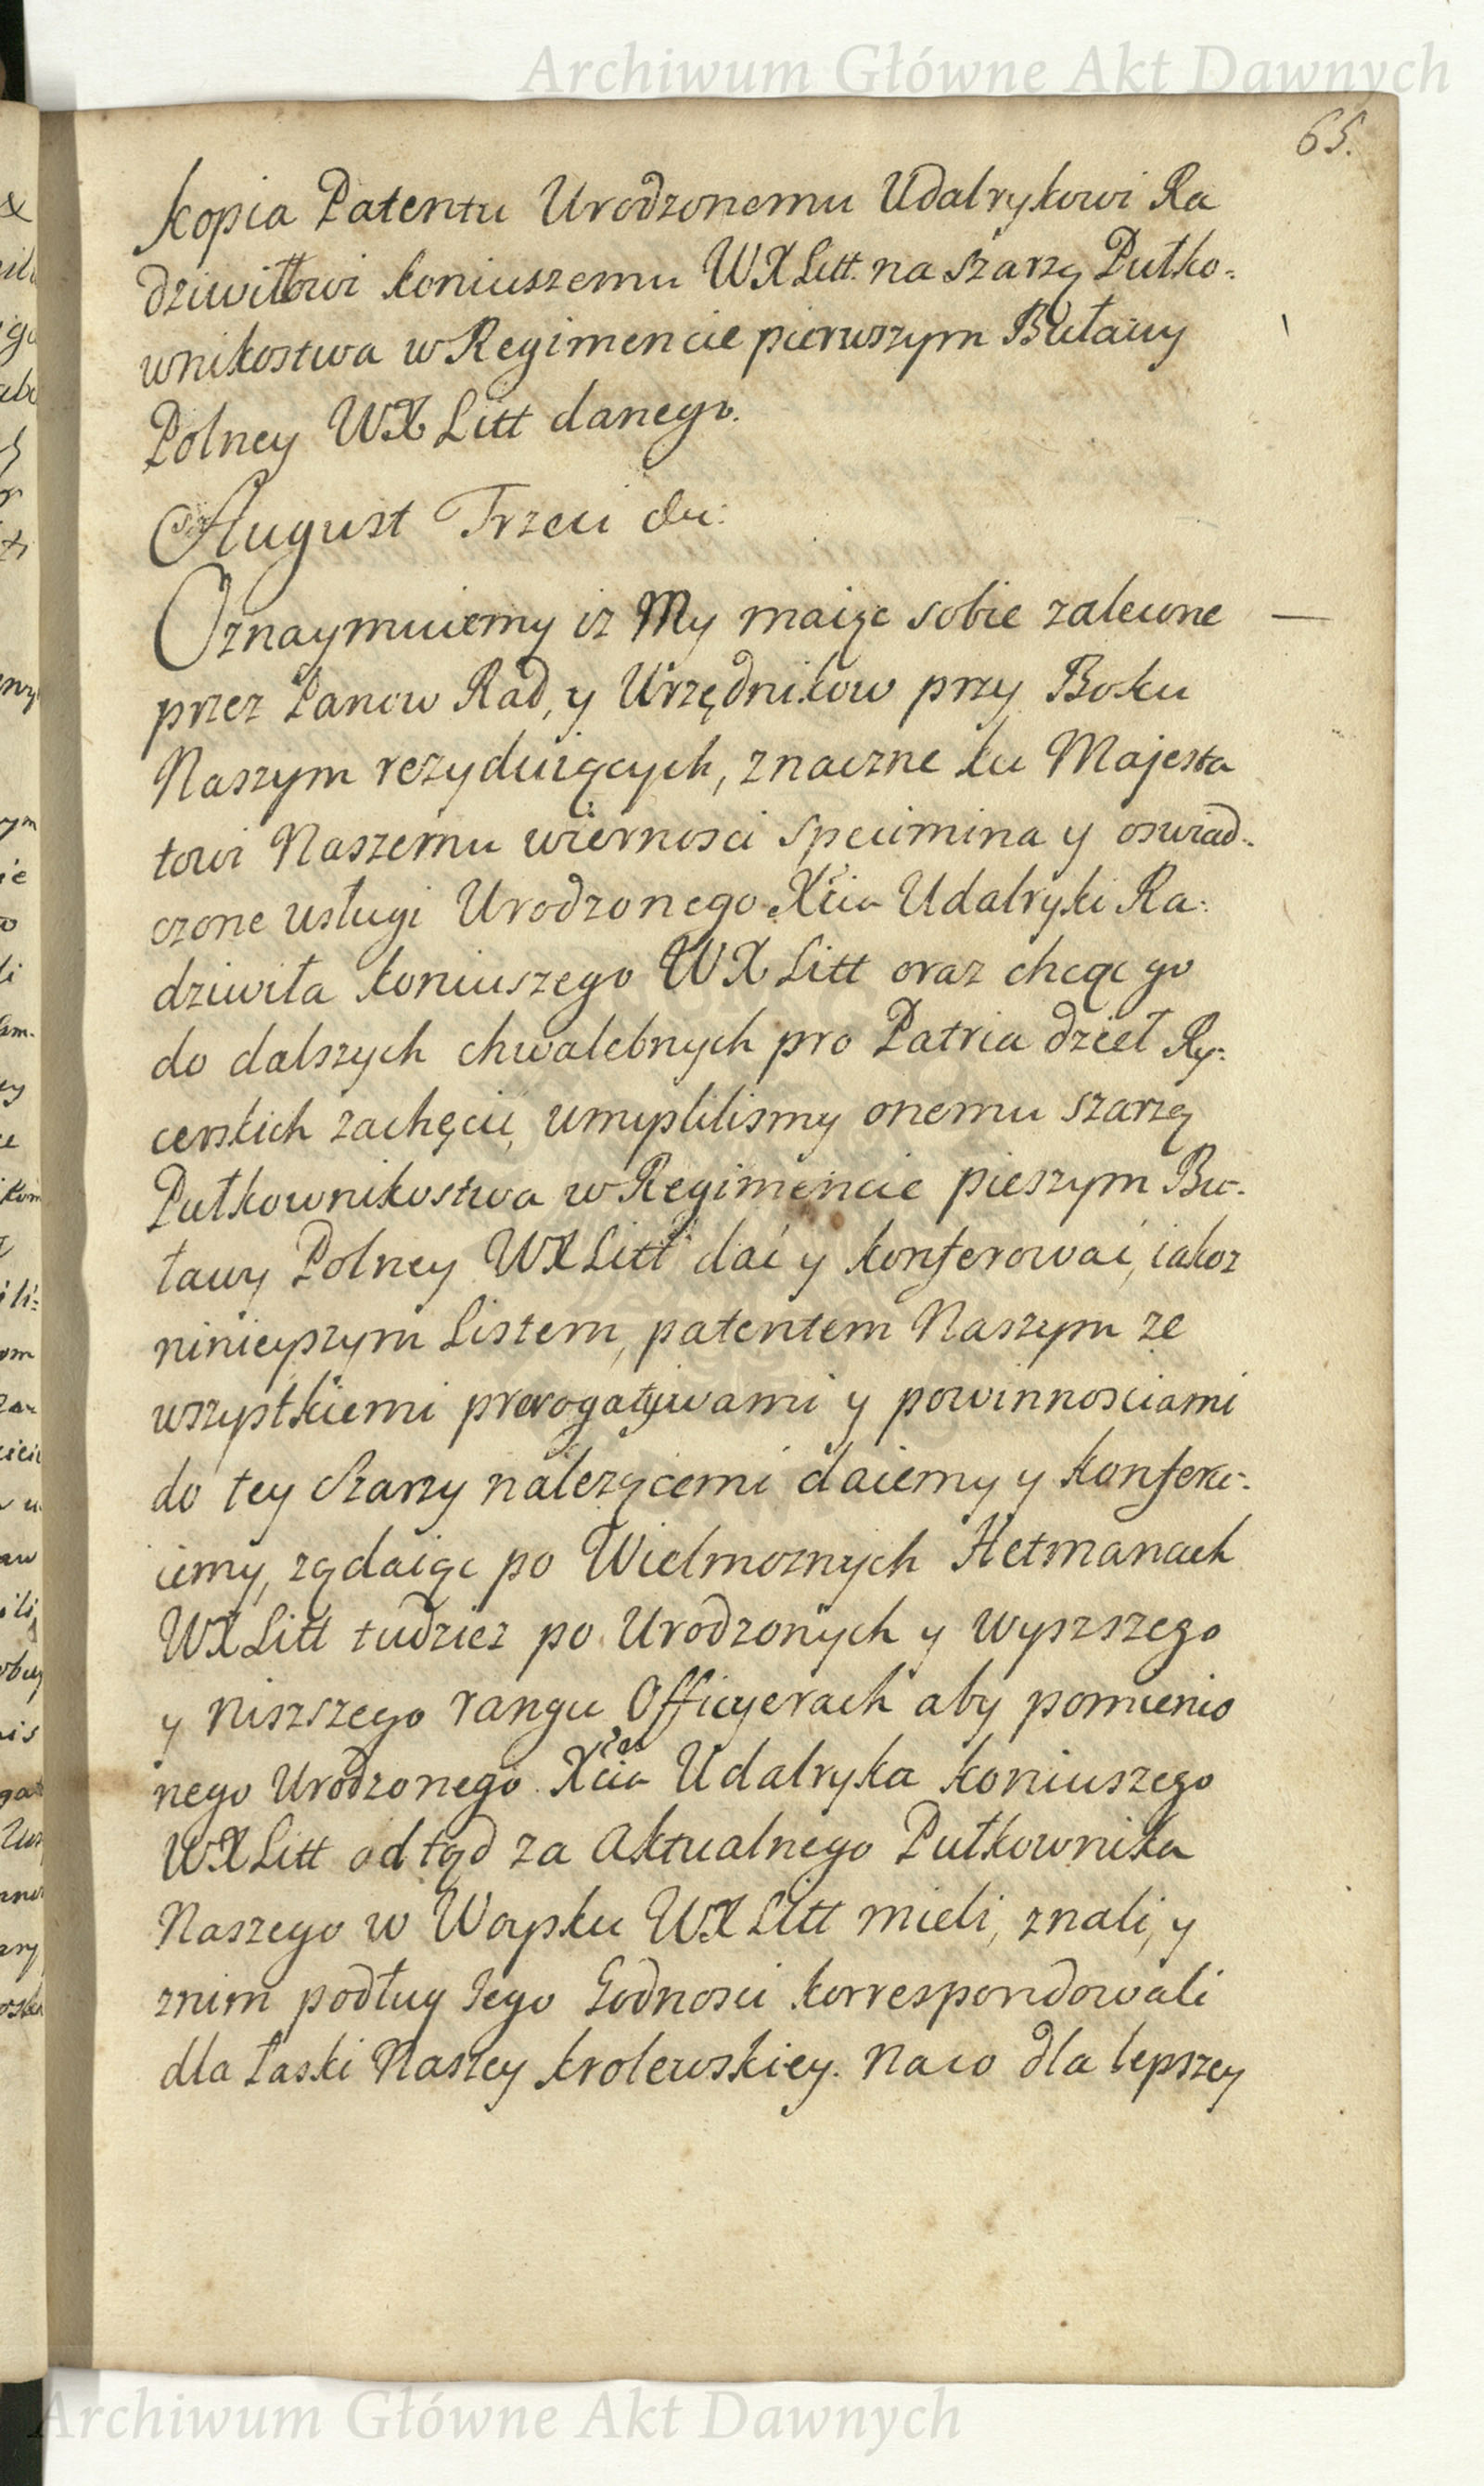 Archiwum Główne Akt Dawnych
65.
Kopia Patentu Urodzonemu Udalrykowi Ra
dziwiłłowi koniuszemu WX Litt. na szarzę Pułko-
wnikostwa w Regimencie pierwszym Buławy
Polney WX Litt danego.
August Trzeci &c:
Oznaymuiemy iz My maiąc sobie zalecone
przez Panow Rad, y Urzędnikow przy Boku
Naszym rezyduiących, znaczne ku Majesta
towi Naszemu wiernosci specimina y oswiad-
czone usługi Urodzonego Xcia Udalryki Ra:
dziwiła koniuszego WX Litt oraz chcąc go
do dalszych chwalebnych pro Patria dzieł Ry:
cerskich zachęcic, umyslilismy onemu szarzę
Pułkownikostwa w Regimencie pieszym Bu-
ławy Polney WX Litt dać y konferować, iakoz
ninieyszym Listem, patentem Naszym ze
wszystkiemi prerogatywami y powinnosciami
do tey Szarzy nalezącemi daiemy y konferu-
iemy, ządaiąc po Wielmoznych Hetmanach
WX Litt tudziez po Urodzonych y wyszszego
y niszszego rangu Officyerach aby pomienio
nego Urodzonego Xcia Udalryka koniuszego
WX Litt odtąd za Aktualnego Pułkownika
Naszego w Woysku WX Litt mieli, znali, y
znim podług Jego Godnosci korrespondowali
dla Łaski Naszey krolewskiey. Naco dla lepszey
Archiwum Główne Akt Dawnych